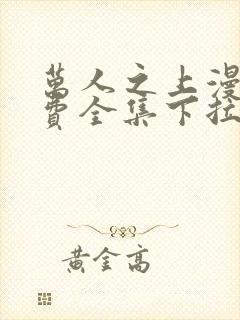 萬人之上漫
費全集下拉
黃金高